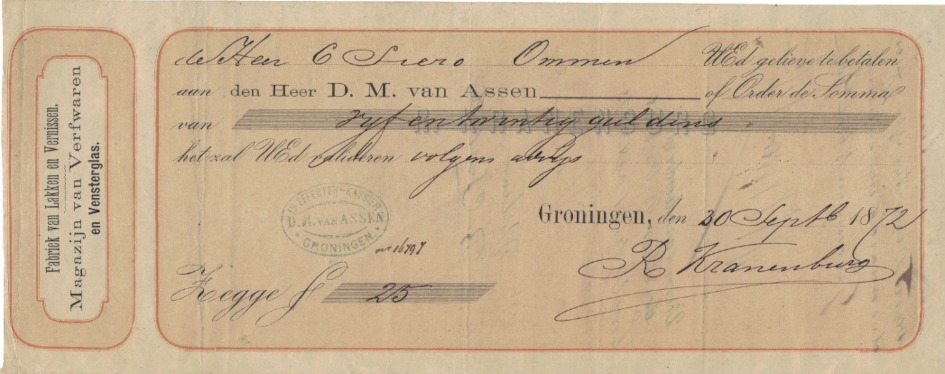 Fabriek van Lakken en Vernissen.
Magazijn van Verfwaren
en Vensterglas.
de Heer C Siero Ommen UEd gelieve te betalen
aan den Heer D. M. van Assen of Order de Somma
van vyfentwintig guldens
het zal UEd valideren volgens advijs
Groningen, den 30 Septb 1872
R Kranenburg
EFFECTEN-KASSIER
D. M. VAN ASSEN
GRONINGEN.
Zegge f 25